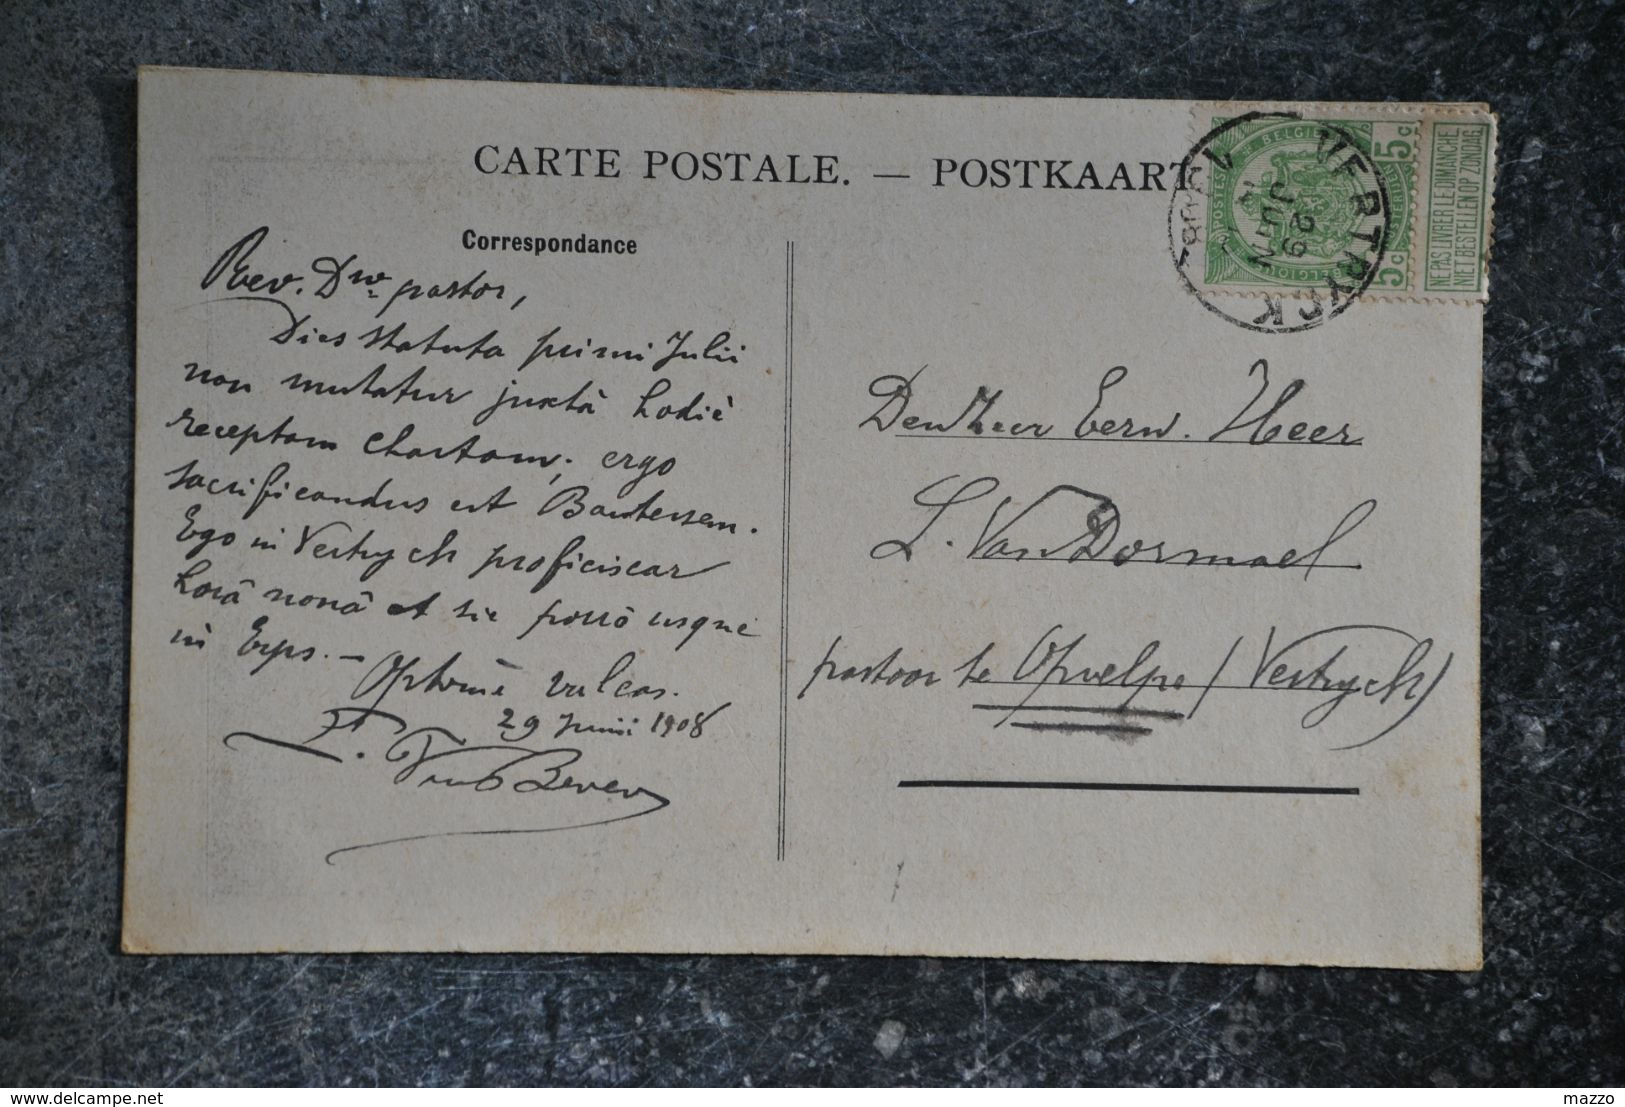 CARTE POSTALE. — POSTKAART
Correspondance
Rev. Dne pastor,
Dies statuta primi Julii
non mutatur juxtà hodiè
receptam chartam; ergo
sacrificandus est Bautersem.
Ego in Vertrych proficiscar
horâ nonâ et sic porrò usque
in Erps. —
Optimè valeas.
29 Junii 1908
F. Van Bever
5c BELGIË 5c
POSTES
BELGIQUE
NE PAS LIVRER LE DIMANCHE
NIET BESTELLEN OP ZONDAG
VERTRYCK
29
JUIN
1908
Den Zeer Eerw. Heer
L. Van Dormael
pastoor te Opvelpe (Vertrych)
www.delcampe.net
mazzo